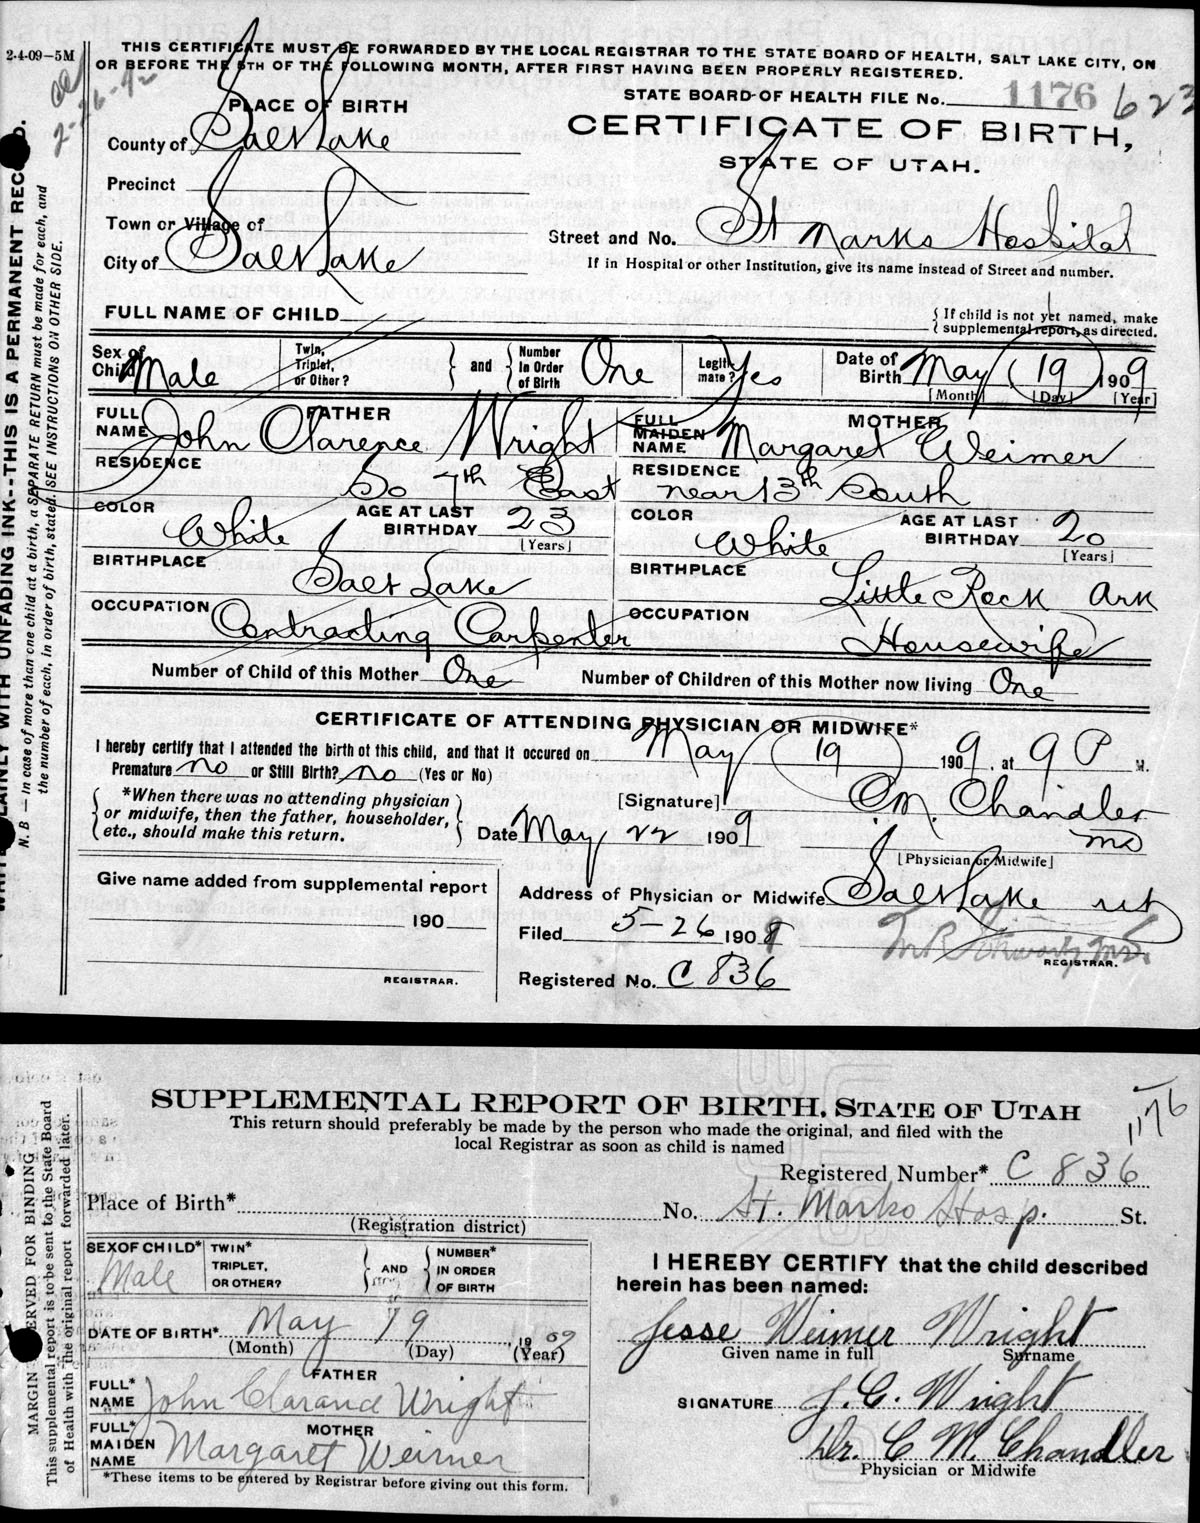 2-4-09—5M
THIS CERTIFICATE MUST BE FORWARDED BY THE LOCAL REGISTRAR TO THE STATE BOARD OF HEALTH, SALT LAKE CITY, ON
OR BEFORE THE 5TH OF THE FOLLOWING MONTH, AFTER FIRST HAVING BEEN PROPERLY REGISTERED.
2-26-42
STATE BOARD OF HEALTH FILE No. 1176 623
PLACE OF BIRTH
CERTIFICATE OF BIRTH,
STATE OF UTAH.
County of Salt Lake
Precinct
Town or Village of
City of Salt Lake
Street and No. St Marks Hospital
If in Hospital or other Institution, give its name instead of Street and number.
FULL NAME OF CHILD
{ If child is not yet named, make
supplemental report, as directed.
Sex of Child Male
Twin, Triplet, or Other? } and { Number in Order of Birth One
Legitimate? Yes
Date of Birth May 19 1909
[Month] [Day] [Year]
FATHER
FULL NAME John Clarence Wright
MOTHER
FULL MAIDEN NAME Margaret Weimer
RESIDENCE So 7th East
RESIDENCE near 13th South
COLOR White AGE AT LAST BIRTHDAY 23 [Years]
COLOR White AGE AT LAST BIRTHDAY 20 [Years]
BIRTHPLACE Salt Lake
BIRTHPLACE Little Rock Ark
OCCUPATION Contracting Carpenter
OCCUPATION Housewife
Number of Child of this Mother One Number of Children of this Mother now living One
CERTIFICATE OF ATTENDING PHYSICIAN OR MIDWIFE*
I hereby certify that I attended the birth of this child, and that it occured on May 19 1909, at 9 P M.
Premature no or Still Birth? no (Yes or No)
*When there was no attending physician
or midwife, then the father, householder,
etc., should make this return.
[Signature] C. M. Chandler
MD
Date May 22 1909
[Physician or Midwife]
Give name added from supplemental report
190
REGISTRAR.
Address of Physician or Midwife Salt Lake Ut
Filed 5-26 1909
REGISTRAR.
Registered No. C 836
WRITE PLAINLY WITH UNFADING INK--THIS IS A PERMANENT RECORD.
N. B — In case of more than one child at a birth, a SEPARATE RETURN must be made for each, and
the number of each, in order of birth, stated. SEE INSTRUCTIONS ON OTHER SIDE.
SUPPLEMENTAL REPORT OF BIRTH, STATE OF UTAH
1176
This return should preferably be made by the person who made the original, and filed with the
local Registrar as soon as child is named
Registered Number* C 836
Place of Birth* No. St. Marks Hosp. St.
(Registration district)
SEX OF CHILD* Male
TWIN* TRIPLET, OR OTHER? } AND { NUMBER* IN ORDER OF BIRTH
I HEREBY CERTIFY that the child described
herein has been named:
DATE OF BIRTH* May 19 1909
(Month) (Day) (Year)
Jesse Weimer Wright
Given name in full Surname
FATHER
FULL* NAME John Clarance Wright
SIGNATURE J. C. Wright
MOTHER
FULL* MAIDEN NAME Margaret Weimer
Dr. C M. Chandler
Physician or Midwife
*These items to be entered by Registrar before giving out this form.
MARGIN RESERVED FOR BINDING
This supplemental report is to be sent to the State Board
of Health with the original report forwarded later.